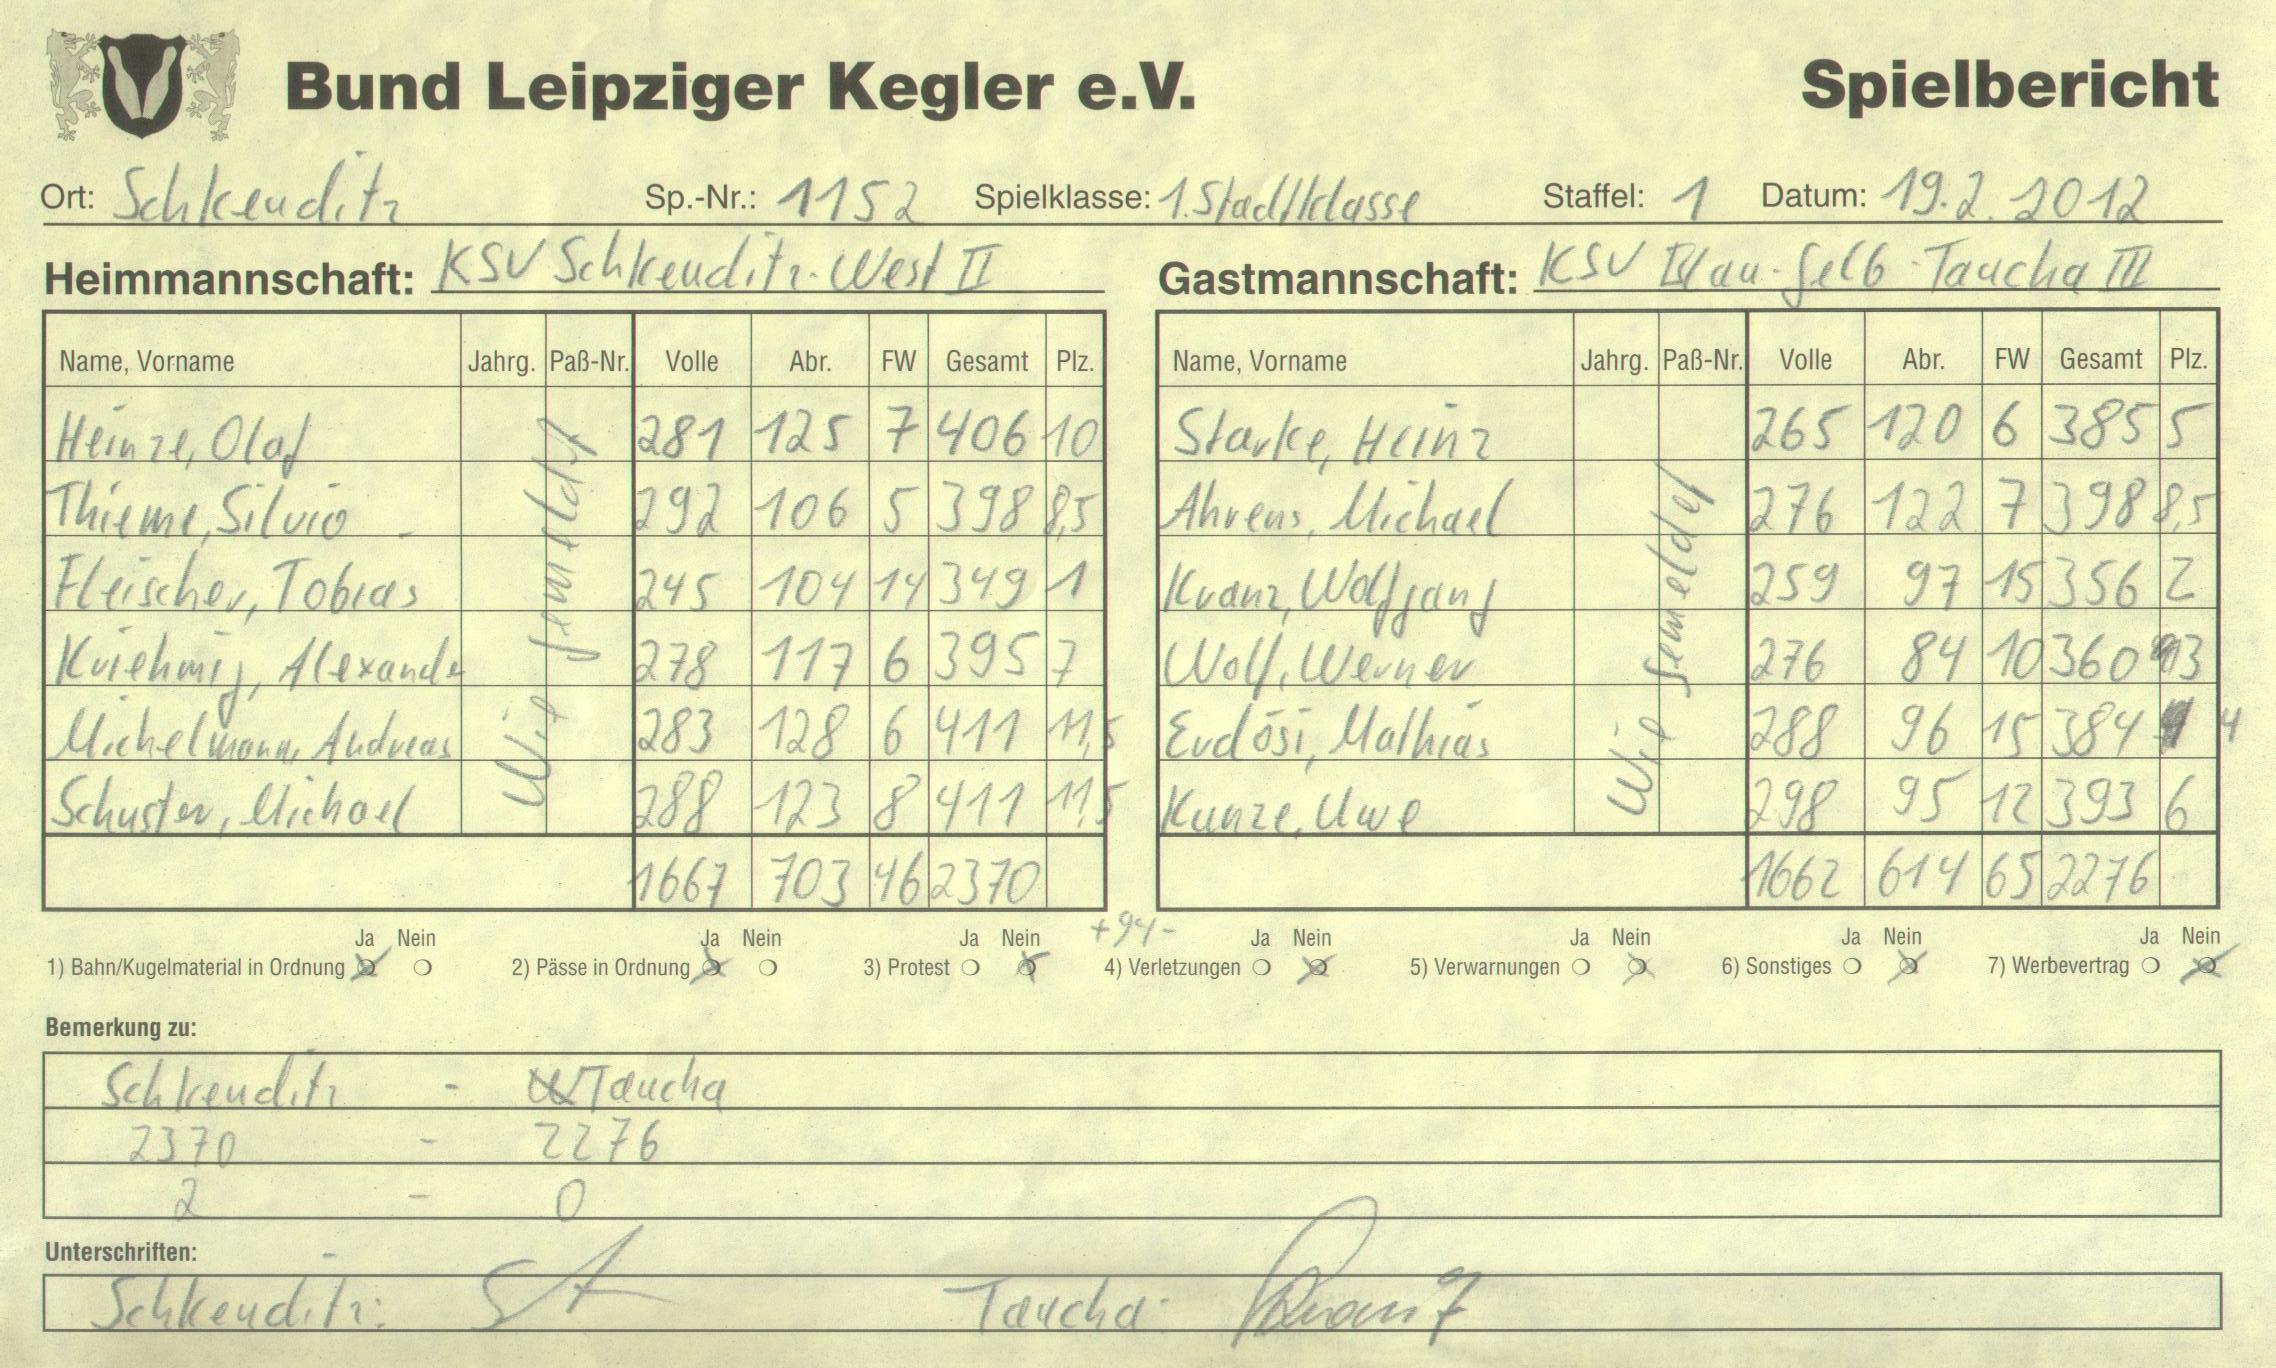 Bund Leipziger Kegler e.V. Spielbericht
Ort: Schkeuditz Sp.-Nr.: 1152 Spielklasse: 1. Stadtklasse Staffel: 1 Datum: 19.2.2012
Heimmannschaft: KSV Schkeuditz-West II Gastmannschaft: KSV Blau-Gelb-Taucha III
Name, Vorname Jahrg. Paß-Nr. Volle Abr. FW Gesamt Plz. Name, Vorname Jahrg. Paß-Nr. Volle Abr. FW Gesamt Plz.
Heinze, Olaf 281 125 7 406 10 Starke, Heinz 265 120 6 385 5
Thieme, Silvio 292 106 5 398 8,5 Ahrens, Michael 276 122 7 398 8,5
Fleischer, Tobias 245 104 14 349 1 Kranz, Wolfgang 259 97 15 356 2
Kriehmig, Alexande 278 117 6 395 7 Wolf, Werner 276 84 10 360 3
Michelmann, Andreas 283 128 6 411 11,5 Erdösi, Mathias 288 96 15 384 4
Schuster, Michael 288 123 8 411 11,5 Kunze, Uwe 298 95 12 393 6
Wie gemeldet Wie gemeldet
1667 703 46 2370 1662 614 65 2276
+94-
Ja Nein Ja Nein Ja Nein Ja Nein Ja Nein Ja Nein Ja Nein
1) Bahn/Kugelmaterial in Ordnung 2) Pässe in Ordnung 3) Protest 4) Verletzungen 5) Verwarnungen 6) Sonstiges 7) Werbevertrag
Bemerkung zu:
Schkeuditz - Taucha
2370 - 2276
2 - 0
Unterschriften:
Schkeuditz: Taucha: